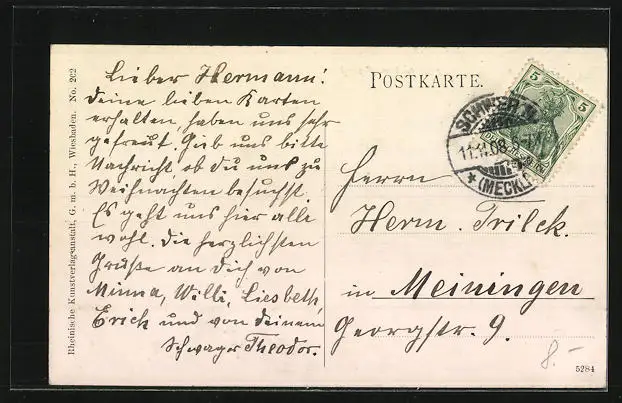 Lieber Hermann!
Deine lieben Karten
erhalten, haben uns sehr
gefreut. Gieb uns bitte
Nachricht, ob du uns zu
Weihnachten besuchst.
Es geht uns hier alle
wohl. Die herzlichsten
Grüße an Dich von
Minna, Willi, Liesbeth,
Erich und von Deinem
Schwager Theodor.
POSTKARTE.
5 5
SCHWERIN
11.11.08
*(MECKL.)
Herrn
Herm. Trilck.
in Meiningen
Georgstr. 9.
8.-
5284
Rheinische Kunstverlagsanstalt, G. m. b. H., Wiesbaden. No. 202